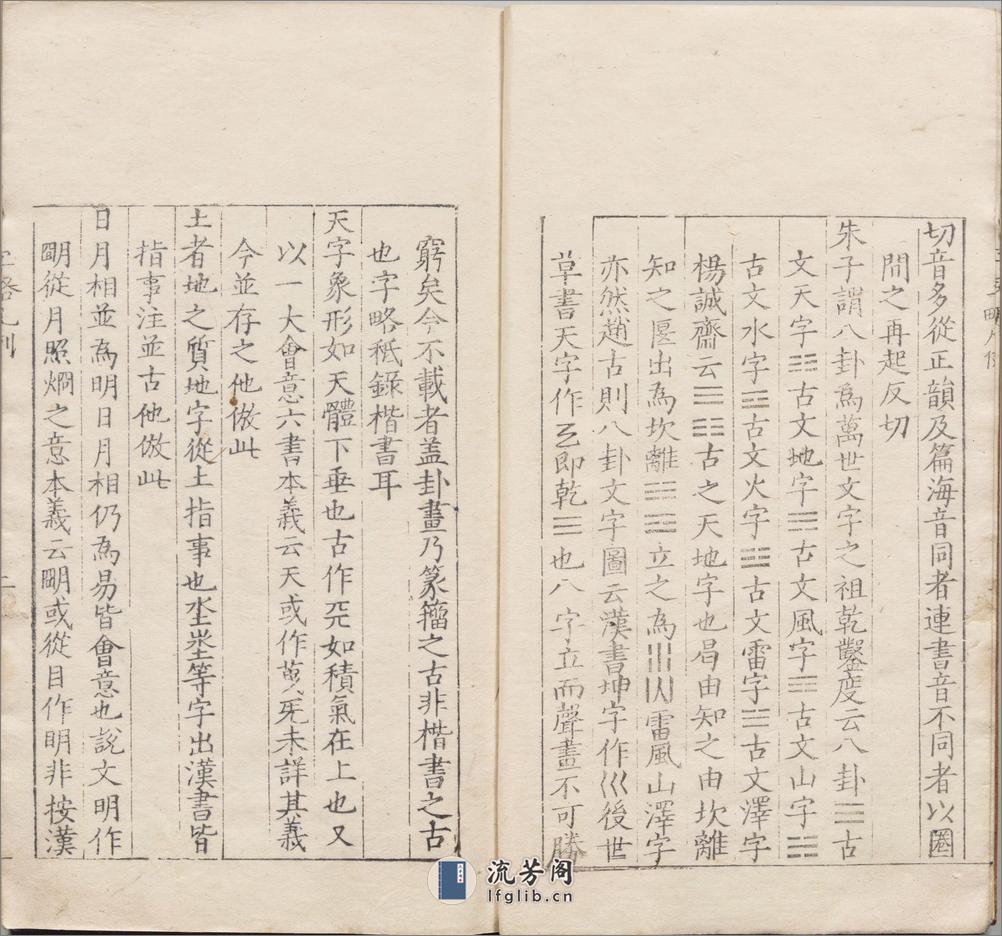 切音多從正韻及篇海音同者連書音不同者以圈
間之再起反切
朱子謂八卦爲萬世文字之祖乾鑿度云八卦☰古
文天字☷古文地字☴古文風字☶古文山字☵
古文水字☲古文火字☳古文雷字☱古文澤字
楊誠齋云☰☷古之天地字也曷由知之由坎離
知之偃出爲坎離☵☲立之爲雷風山澤字
亦然趙古則八卦文字圖云漢書坤字作巛後世
草書天字作即乾☰也八字立而聲畫不可勝
窮矣今不載者盖卦畫乃篆籀之古非楷書之古
也字略秪錄楷書耳
天字象形如天體下垂也古作兲如積氣在上也又
以一大會意六書本義云天或作未詳其義
今並存之他倣此
土者地之質地字從土指事也坔埊等字出漢書皆
指事注並古他倣此
日月相並爲明日月相仍爲易皆會意也說文明作
朙從月照烱之意本義云朙或從目作眀非按漢
流芳阁
lfglib.cn